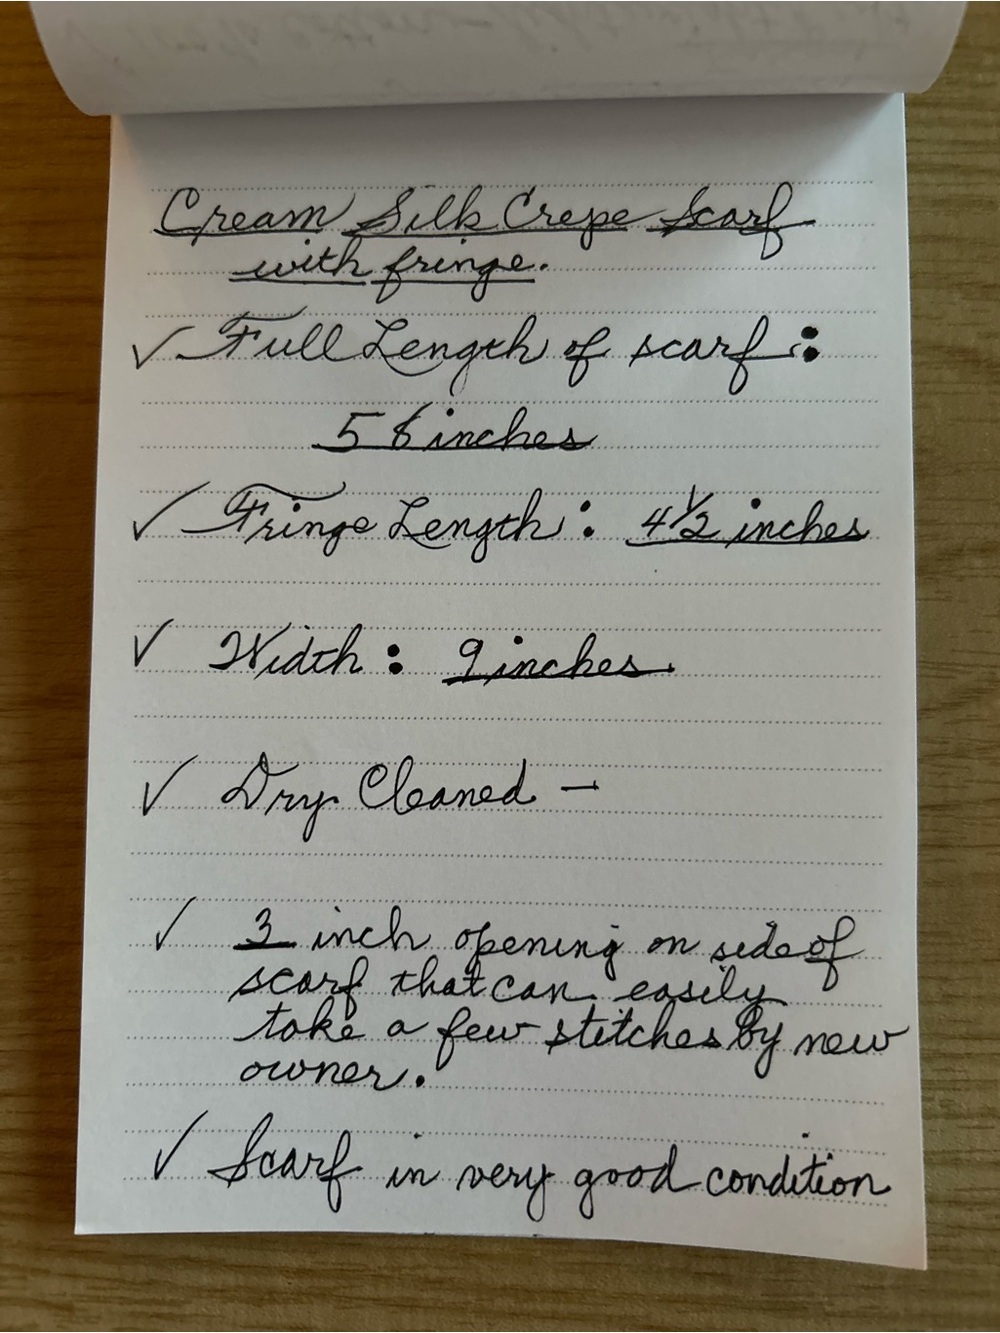 Cream Silk Crepe Scarf
with fringe.
✓ Full Length of scarf:
56 inches
✓ Fringe Length: 4½ inches
✓ Width: 9 inches
✓ Dry Cleaned —
✓ 3 inch opening on side of
scarf that can easily
take a few stitches by new
owner.
✓ Scarf in very good condition